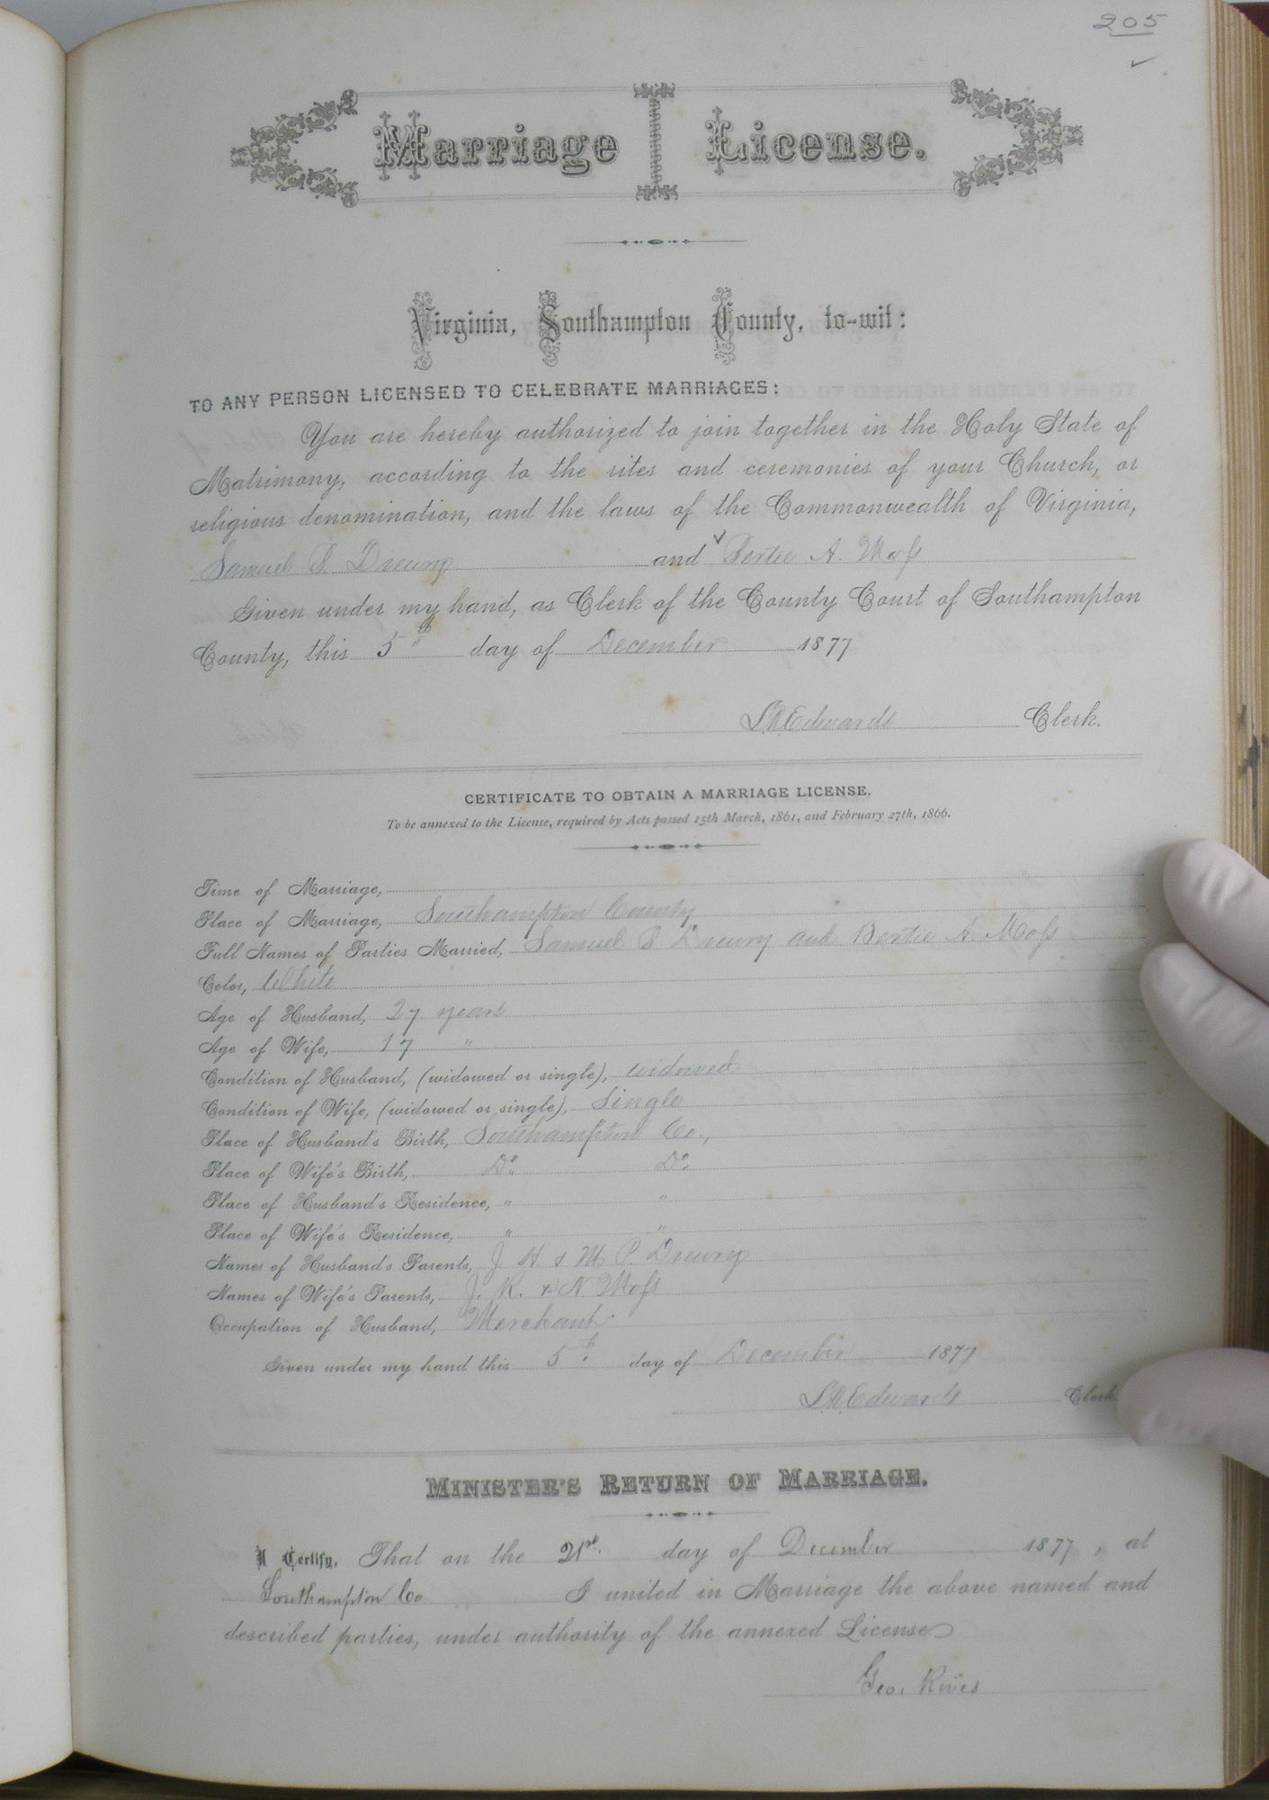 205
Marriage License.
Virginia, Southampton County, to-wit:
TO ANY PERSON LICENSED TO CELEBRATE MARRIAGES:
You are hereby authorized to join together in the Holy State of
Matrimony, according to the rites and ceremonies of your Church, or
religious denomination, and the laws of the Commonwealth of Virginia,
Samuel B. Drewry and Bertie A. Moss
Given under my hand, as Clerk of the County Court of Southampton
County, this 5th day of December 1877
L R Edwards Clerk.
CERTIFICATE TO OBTAIN A MARRIAGE LICENSE.
To be annexed to the License, required by Acts passed 15th March, 1861, and February 27th, 1866.
Time of Marriage,
Place of Marriage, Southampton County
Full Names of Parties Married, Samuel B Drewry and Bertie A Moss
Color, White
Age of Husband, 27 years
Age of Wife, 17 "
Condition of Husband, (widowed or single), widowed
Condition of Wife, (widowed or single), Single
Place of Husband's Birth, Southampton Co.,
Place of Wife's Birth, Do Do
Place of Husband's Residence, " "
Place of Wife's Residence, " "
Names of Husband's Parents, J H & M. P. Drewry
Names of Wife's Parents, J. R. & N Moss
Occupation of Husband, Merchant
Given under my hand this 5th day of December 1877
L R Edwards Clerk
MINISTER'S RETURN OF MARRIAGE.
I Certify, That on the 21st. day of December 1877, at
Southampton Co I united in Marriage the above named and
described parties, under authority of the annexed License
Geo. Rives